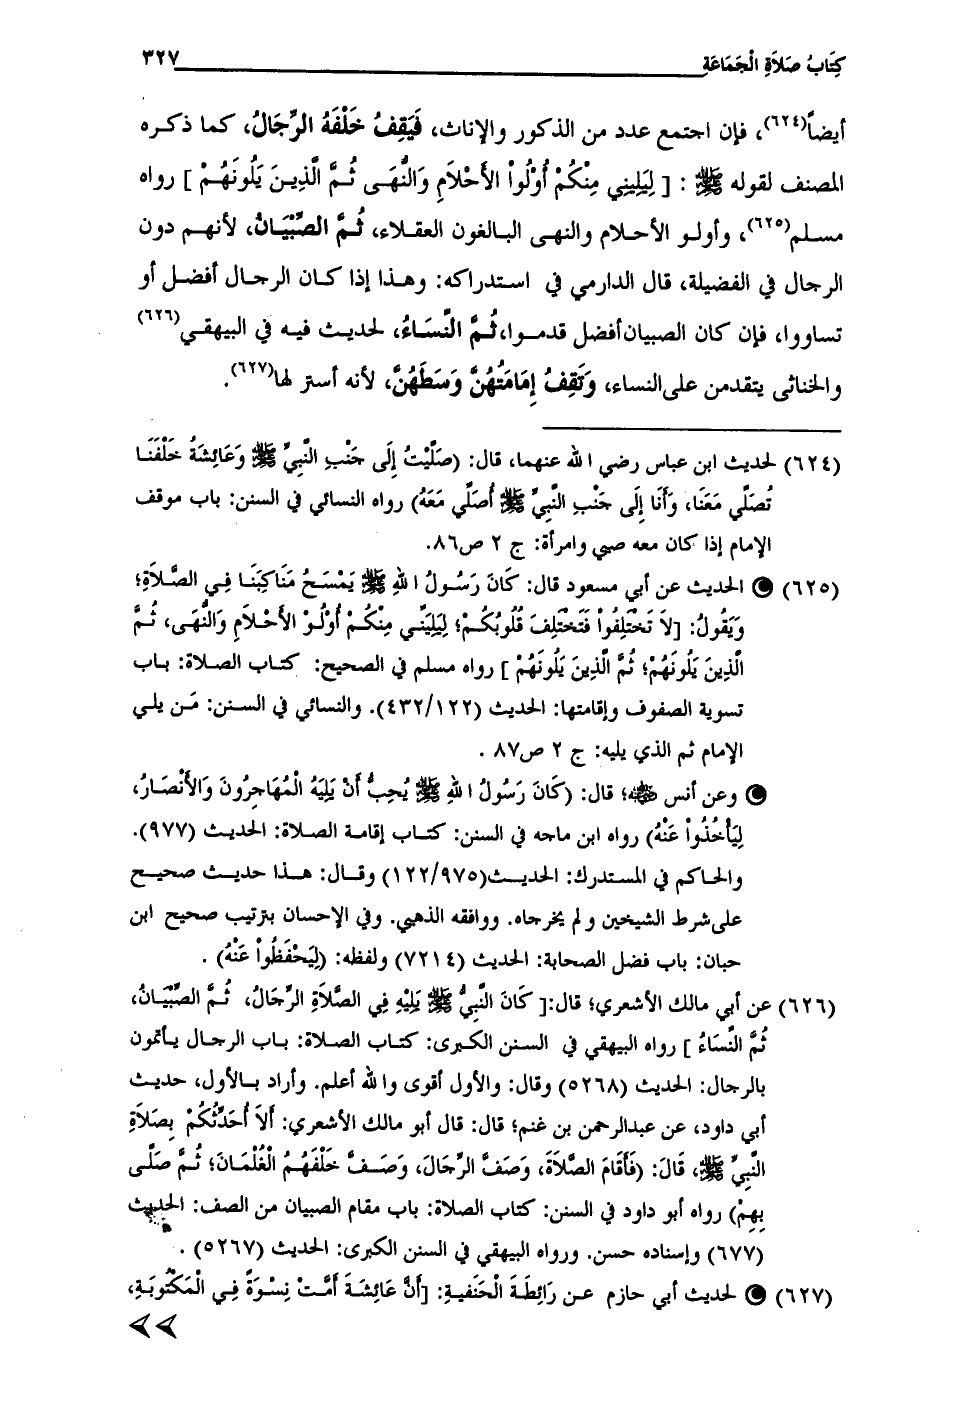 كِتَابُ صَلاَةِ الْجَمَاعَةِ ٣٢٧
أيضاً(٦٢٤)، فإن اجتمع عدد من الذكور والإناث، فَيَقِفُ خَلْفَهُ الرِّجَالُ، كما ذكره
المصنف لقوله ﷺ : [ لِيَلِيني مِنْكُمْ أُوْلُواْ الأَحْلاَمِ وَالنُّهَى ثُمَّ الَّذِينَ يَلُونَهُمْ ] رواه
مسلم(٦٢٥)، وأولو الأحلام والنهى البالغون العقلاء، ثُمَّ الصِّبْيَانُ، لأنهم دون
الرجال في الفضيلة، قال الدارمي في استدراكه: وهذا إذا كان الرجال أفضل أو
تساووا، فإن كان الصبيان أفضل قدموا، ثُمَّ النِّسَاءُ، لحديث فيه في البيهقي(٦٢٦)
والخناثى يتقدمن على النساء، وَتَقِفُ إِمَامَتُهُنَّ وَسَطَهُنَّ، لأنه أستر لها(٦٢٧).
(٦٢٤) لحديث ابن عباس رضي الله عنهما، قال: (صَلَّيْتُ إِلَى جَنْبِ النَّبِيِّ ﷺ وَعَائِشَةُ خَلْفَنَا
تُصَلِّي مَعَنَا، وَأَنَا إِلَى جَنْبِ النَّبِيِّ ﷺ أُصَلِّي مَعَهُ) رواه النسائي في السنن: باب موقف
الإمام إذا كان معه صبي وامرأة: ج ٢ ص٨٦.
(٦٢٥) الحديث عن أبي مسعود قال: كَانَ رَسُولُ اللهِ ﷺ يَمْسَحُ مَنَاكِبَنَا فِي الصَّلاَةِ؛
وَيَقُولُ: [لاَ تَخْتَلِفُواْ فَتَخْتَلِفَ قُلُوبُكُمْ؛ لِيَلِيَنِّي مِنْكُمْ أُوْلُوْ الأَحْلاَمِ وَالنُّهَى، ثُمَّ
الَّذِينَ يَلُونَهُمْ؛ ثُمَّ الَّذِينَ يَلُونَهُمْ ] رواه مسلم في الصحيح: كتاب الصلاة: باب
تسوية الصفوف وإقامتها: الحديث (٤٣٢/١٢٢). والنسائي في السنن: مَن يلي
الإمام ثم الذي يليه: ج ٢ ص٨٧ .
وعن أنس ﷺ؛ قال: (كَانَ رَسُولُ اللهِ ﷺ يُحِبُّ أَنْ يَلِيَهُ الْمُهَاجِرُونَ وَالأَنْصَارُ،
لِيَأْخُذُواْ عَنْهُ) رواه ابن ماجه في السنن: كتاب إقامة الصلاة: الحديث (٩٧٧).
والحاكم في المستدرك: الحديث(١٢٢/٩٧٥) وقال: هذا حديث صحيح
على شرط الشيخين ولم يخرجاه. ووافقه الذهبي. وفي الإحسان بترتيب صحيح ابن
حبان: باب فضل الصحابة: الحديث (٧٢١٤) ولفظه: (لِيَحْفَظُواْ عَنْهُ) .
(٦٢٦) عن أبي مالك الأشعري؛ قال:[ كَانَ النَّبِيُّ ﷺ يَلِيْهِ فِي الصَّلاَةِ الرِّجَالُ، ثُمَّ الصِّبْيَانُ،
ثُمَّ النِّسَاءُ ] رواه البيهقي في السنن الكبرى: كتاب الصلاة: باب الرجال يأتمون
بالرجال: الحديث (٥٢٦٨) وقال: والأول أقوى والله أعلم. وأراد بالأول، حديث
أبي داود، عن عبدالرحمن بن غنم؛ قال: قال أبو مالك الأشعري: أَلاَ أُحَدِّثُكُمْ بِصَلاَةِ
النَّبِيِّ ﷺ، قَالَ: (فَأَقَامَ الصَّلاَةَ، وَصَفَّ الرِّجَالَ، وَصَفَّ خَلْفَهُمُ الْغُلْمَانَ؛ ثُمَّ صَلَّى
بِهِمْ) رواه أبو داود في السنن: كتاب الصلاة: باب مقام الصبيان من الصف: الحديث
(٦٧٧) وإسناده حسن. ورواه البيهقي في السنن الكبرى: الحديث (٥٢٦٧) .
(٦٢٧) لحديث أبي حازم عن رَائِطَةَ الْحَنَفيةِ: [أَنَّ عَائِشَةَ أَمَّتْ نِسْوَةً فِي الْمَكْتُوبَةِ،